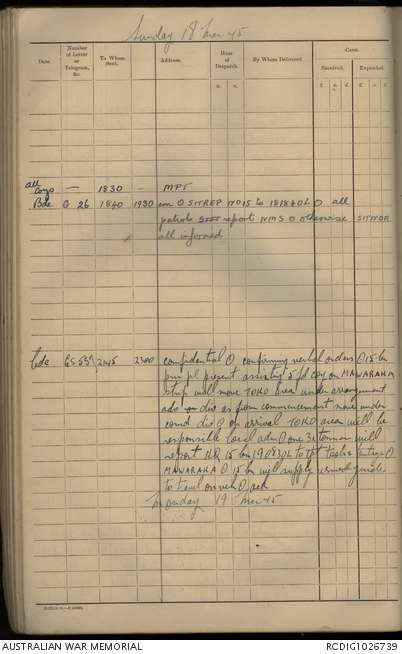 Sunday 18 Mar 45
Date.
Number of Letter or Telegram, &c.
To Whom Sent.
Address.
Hour of Despatch.
By Whom Delivered.
Cash.
Received.
Expended.
£ s. d. £ s. d.
all Coys — 1830 - MPT
Bde O 26 1840 1930 em O SITREP NO 15 to 181840L O all
patrols report NMS O otherwise SITNOR
all informed
bde GS 539 2145 2300 confidential O confirming verbal orders O 15 bn
pnr pl present assisting 5 fd coy on MAWARAKA
strip will move TOKO area under arrangement
adv on div as from commencement move under
comd div O on arrival TOKO area will be
responsible local adm O one 3 tonner will
report HQ 15 bn 190830L to tpt
MAWARAKA O 15 bn will supply armed guide
to travel on veh O ack
Monday 19 Mar 45
AUSTRALIAN WAR MEMORIAL
RCDIG1026739